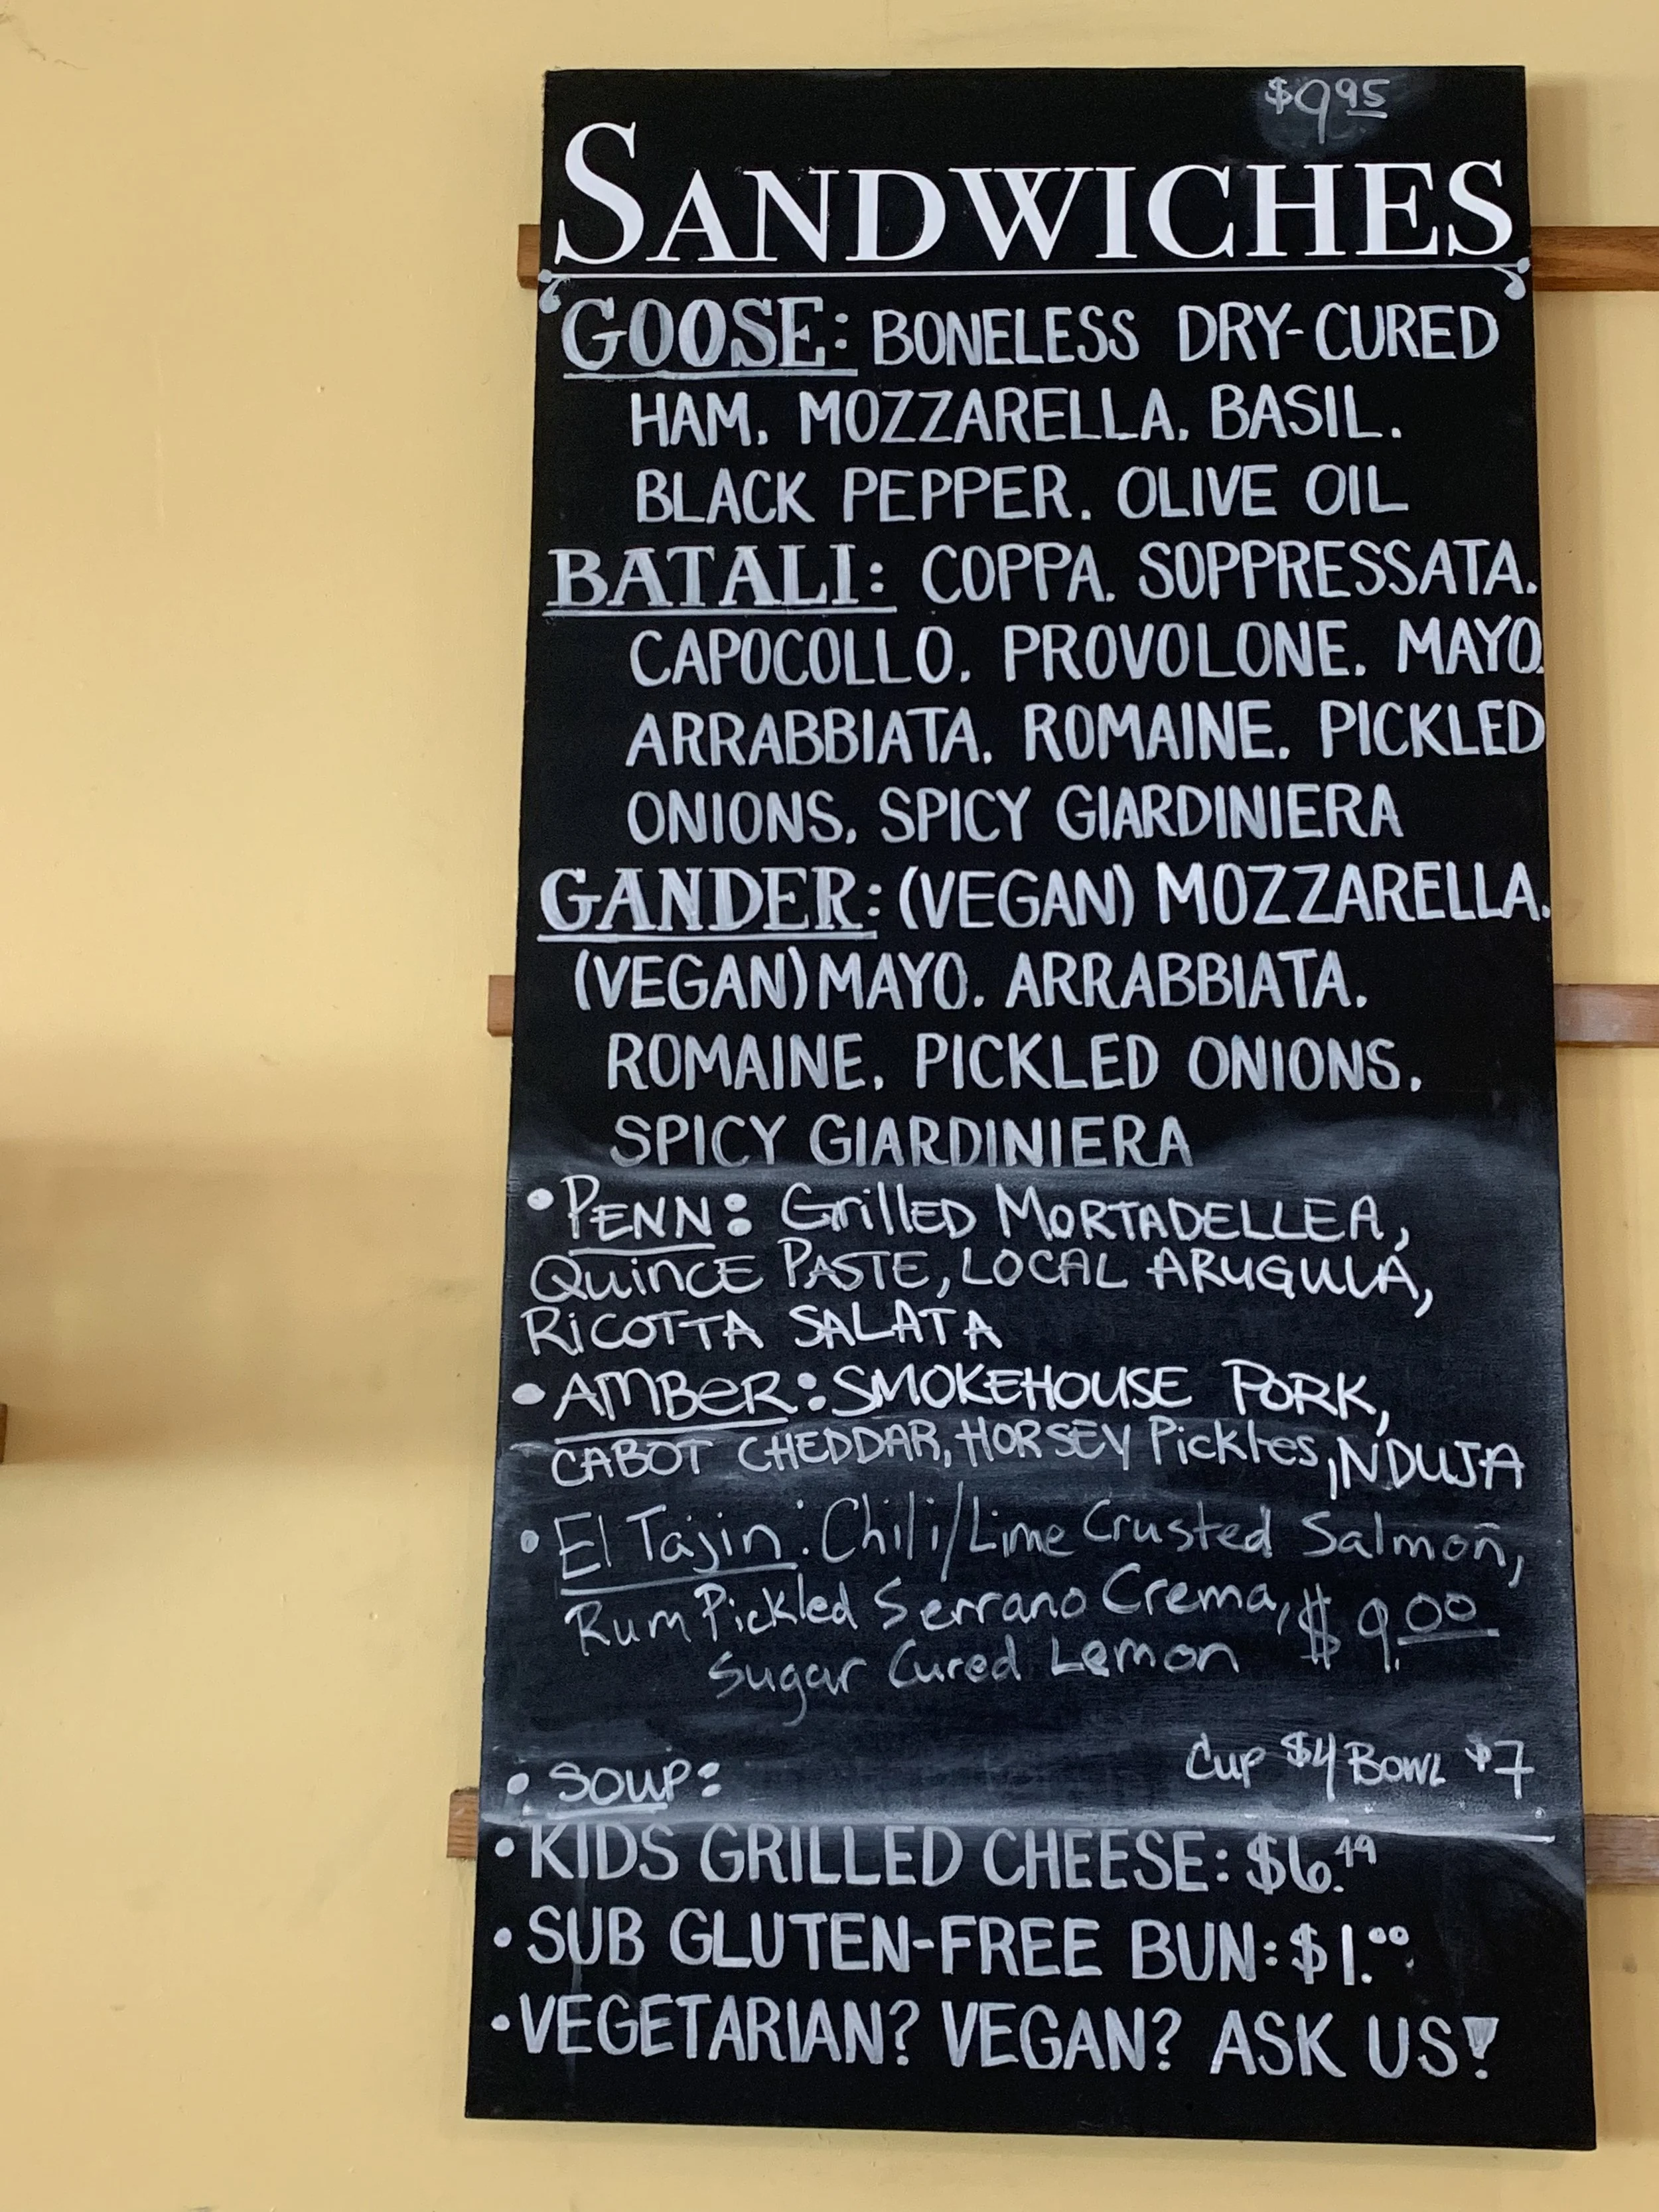 $9.95
SANDWICHES
GOOSE: BONELESS DRY-CURED
HAM, MOZZARELLA, BASIL,
BLACK PEPPER, OLIVE OIL
BATALI: COPPA, SOPPRESSATA,
CAPOCOLLO, PROVOLONE, MAYO,
ARRABBIATA, ROMAINE, PICKLED
ONIONS, SPICY GIARDINIERA
GANDER: (VEGAN) MOZZARELLA,
(VEGAN) MAYO, ARRABBIATA,
ROMAINE, PICKLED ONIONS,
SPICY GIARDINIERA
• PENN: GrillED MORTADELLEA,
QuincE PASTE, LOCAL ARUGULA,
RiCOTTA SALATA
• AMBER: SMOKEHOUSE PORK,
CABOT CHEDDAR, HORSEY Pickles, NDUJA
• El Tajin: Chili/Lime Crusted Salmon,
Rum Pickled Serrano Crema, $9.00
Sugar Cured Lemon
Cup $4 Bowl $7
• SOUP:
• KIDS GRILLED CHEESE: $6.49
• SUB GLUTEN-FREE BUN: $1.00
• VEGETARIAN? VEGAN? ASK US!